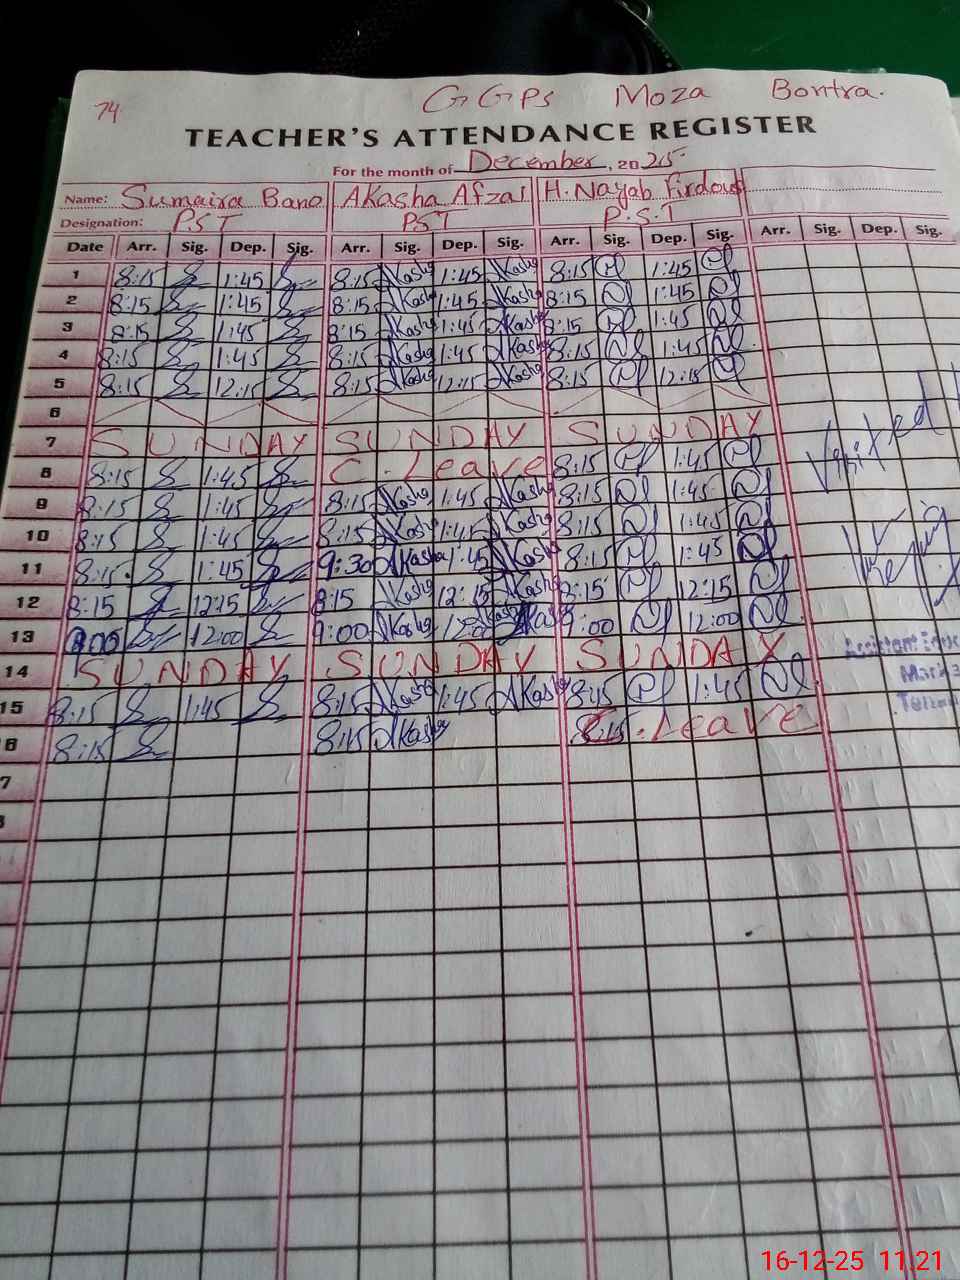 74 GGPS Moza Bontra.
TEACHER'S ATTENDANCE REGISTER
For the month of December, 2025
Name: Sumaira Bano Akasha Afzal H. Nayab Firdous
Designation: PST PST P.S.T
Date Arr. Sig. Dep. Sig. Arr. Sig. Dep. Sig. Arr. Sig. Dep. Sig. Arr. Sig. Dep. Sig.
1 8:15 1:45 8:15 Akasha 1:45 Akasha 8:15 1:45
2 8:15 1:45 8:15 Akasha 1:45 Akasha 8:15 1:45
3 8:15 1:45 8:15 Akasha 1:45 Akasha 8:15 1:45
4 8:15 1:45 8:15 Akasha 1:45 Akasha 8:15 1:45
5 8:15 12:15 8:15 Akasha 12:15 Akasha 8:15 12:15
6
7 SUNDAY SUNDAY SUNDAY
8 8:15 1:45 C. Leave 8:15 1:45
9 8:15 1:45 8:15 Akasha 1:45 Akasha 8:15 1:45
10 8:15 1:45 8:15 Akasha 1:45 Akasha 8:15 1:45
11 8:15 1:45 9:30 Akasha 1:45 Akasha 8:15 1:45
12 8:15 12:15 8:15 Akasha 12:15 Akasha 8:15 12:15
13 9:00 12:00 9:00 Akasha 12:00 Akasha 9:00 12:00
14 SUNDAY SUNDAY SUNDAY
15 8:15 1:45 8:15 Akasha 1:45 Akasha 8:15 1:45
16 8:15 8:15 Akasha C. Leave
7
Visited
Assistant
16-12-25 11:21